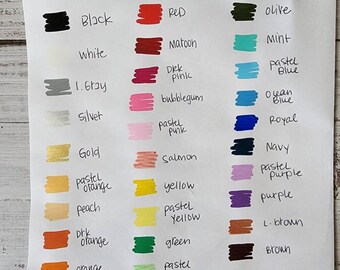 Black
White
L. Gray
Silver
Gold
pastel
orange
peach
Drk
orange
orange
RED
Maroon
Drk
pink
bubblegum
pastel
pink
Salmon
yellow
pastel
yellow
green
pastel
olive
Mint
pastel
Blue
Ocean
Blue
Royal
Navy
pastel
purple
purple
L. brown
Brown